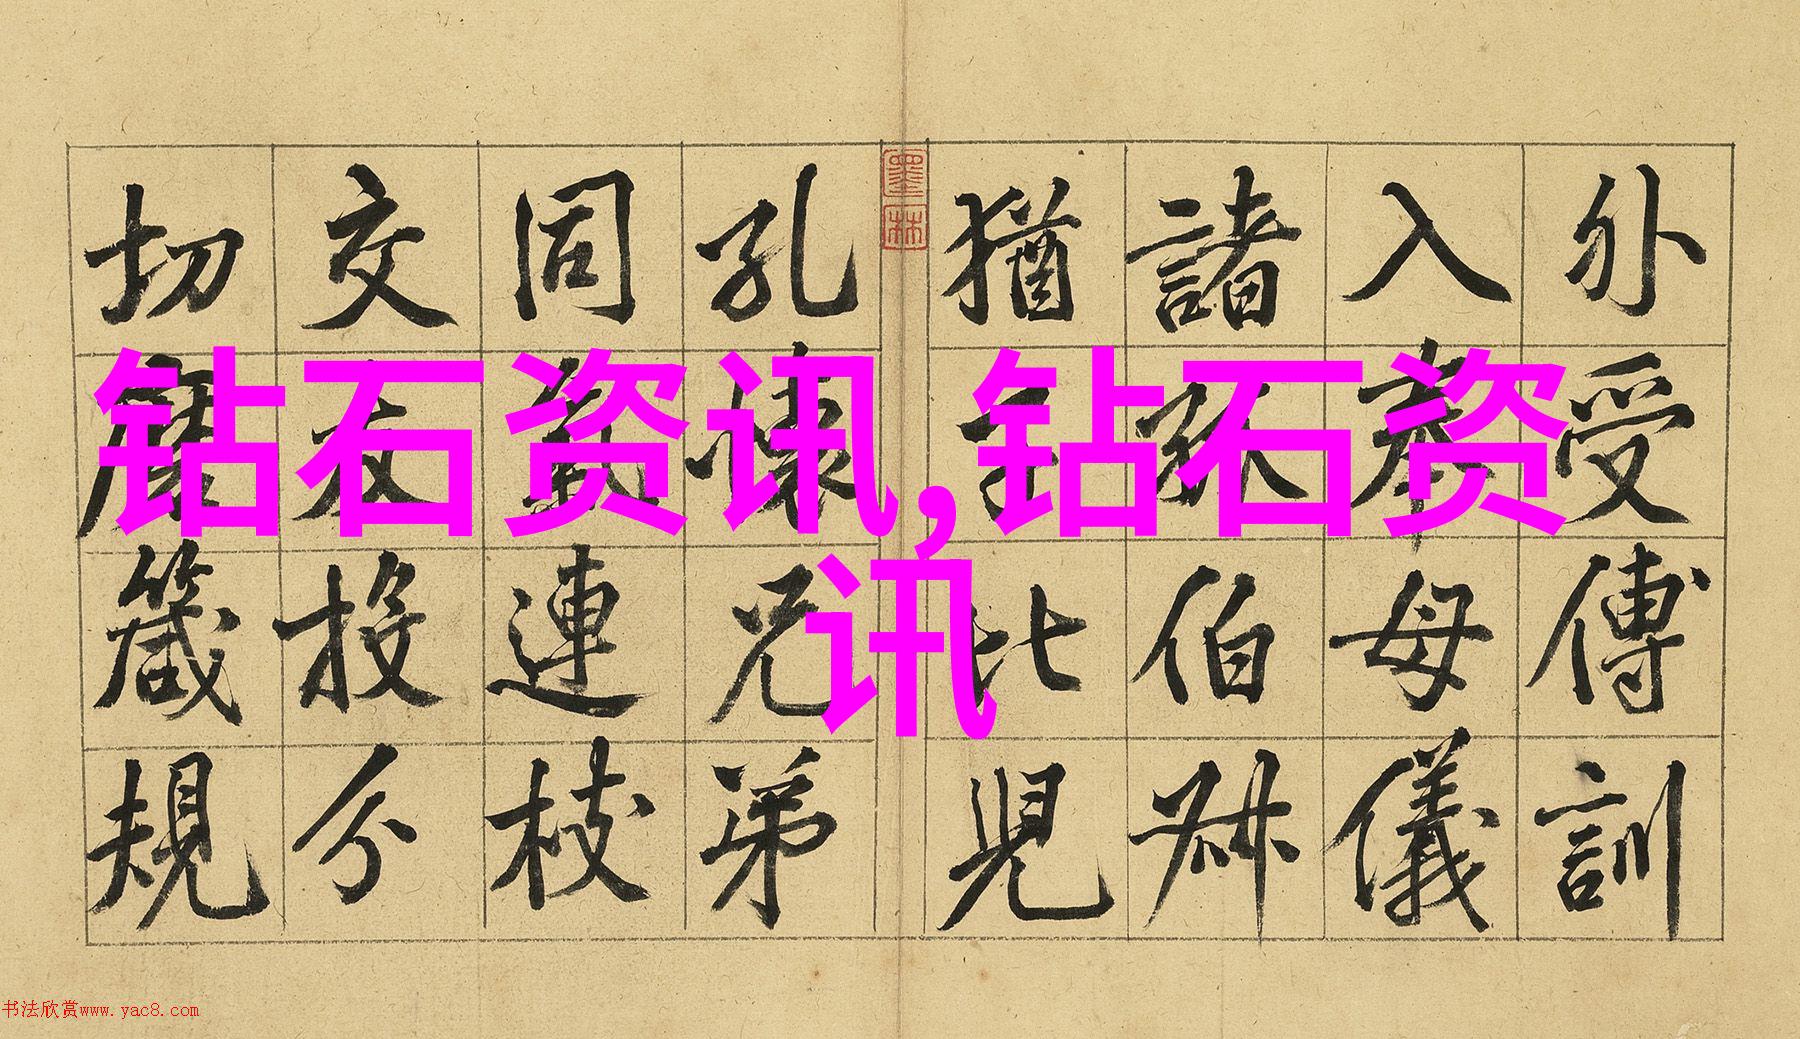 钻石资讯,钻石资
讯
外受傅訓
入奉母儀
諸伯叔
猶子比兒
孔懷兄弟
同連枝
交友投分
切磨箴規
墨林
书法欣赏www.yac8.com